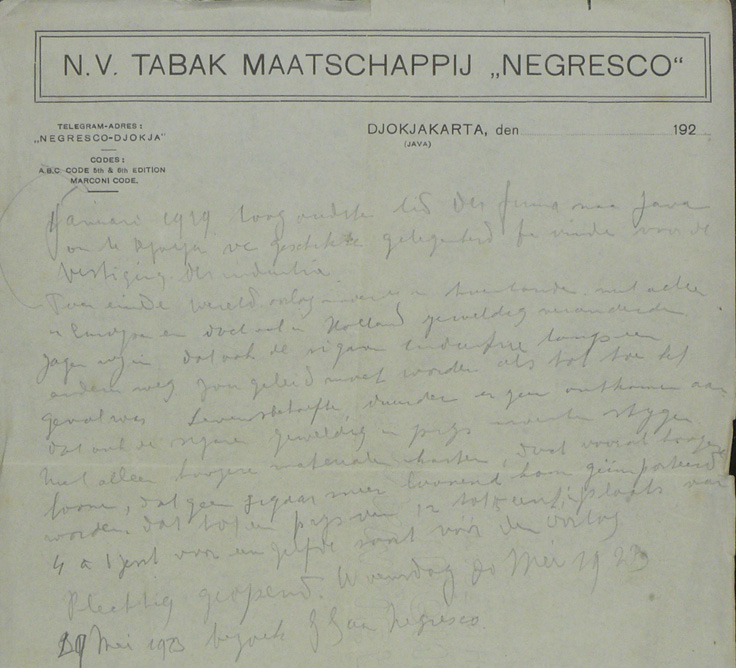 N.V. TABAK MAATSCHAPPIJ „NEGRESCO“
TELEGRAM-ADRES:
„NEGRESCO-DJOKJA“
CODES:
A.B.C CODE 5th & 6th EDITION
MARCONI CODE.
DJOKJAKARTA, den 192
(JAVA)
Januari 1919 toog oudste lid der firma naar Java
om te Djokja de geschikte gelegenheid te vinden voor de
vestiging der industrie.
einde wereldoorlog niet alleen
in Europa en ook in Holland geweldig veranderden
zag men in dat ook de sigaren industrie langs een
andere weg zou geleid moet worden als tot toe het
geval was Levensbehoefte, duurder er geen ontkomen aan
dat ook de sigaren geweldig in prijs moesten stijgen
Niet alleen hoogere materialen kosten, doch vooral hoogere
loonen, dat geen sigaar meer loonend kon geïmporteerd
worden dat tot een prijs van 12 tot cent inplaats van
4 a 5 cent voor een zelfde soort vóór den oorlog
Plechtig geopend. Woensdag 30 Mei 1923
29 Mei 1923 bezoek GG aan Negresco.